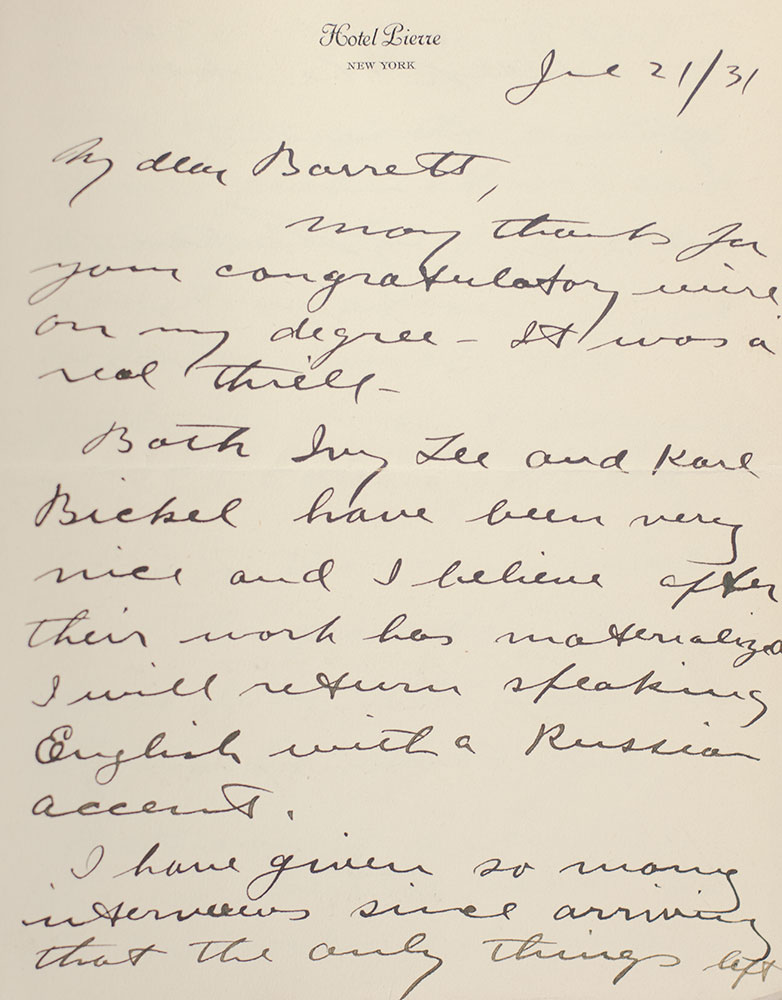 Hotel Pierre
NEW YORK
June 21/31
My dear Barrett,
Many thanks for
your congratulatory wire
on my degree - It was a
real thrill -
Both Ivy Lee and Karl
Bickel have been very
nice and I believe after
their work has materialized
I will return speaking
English with a Russian
accent.
I have given so many
interviews since arriving
that the only things left